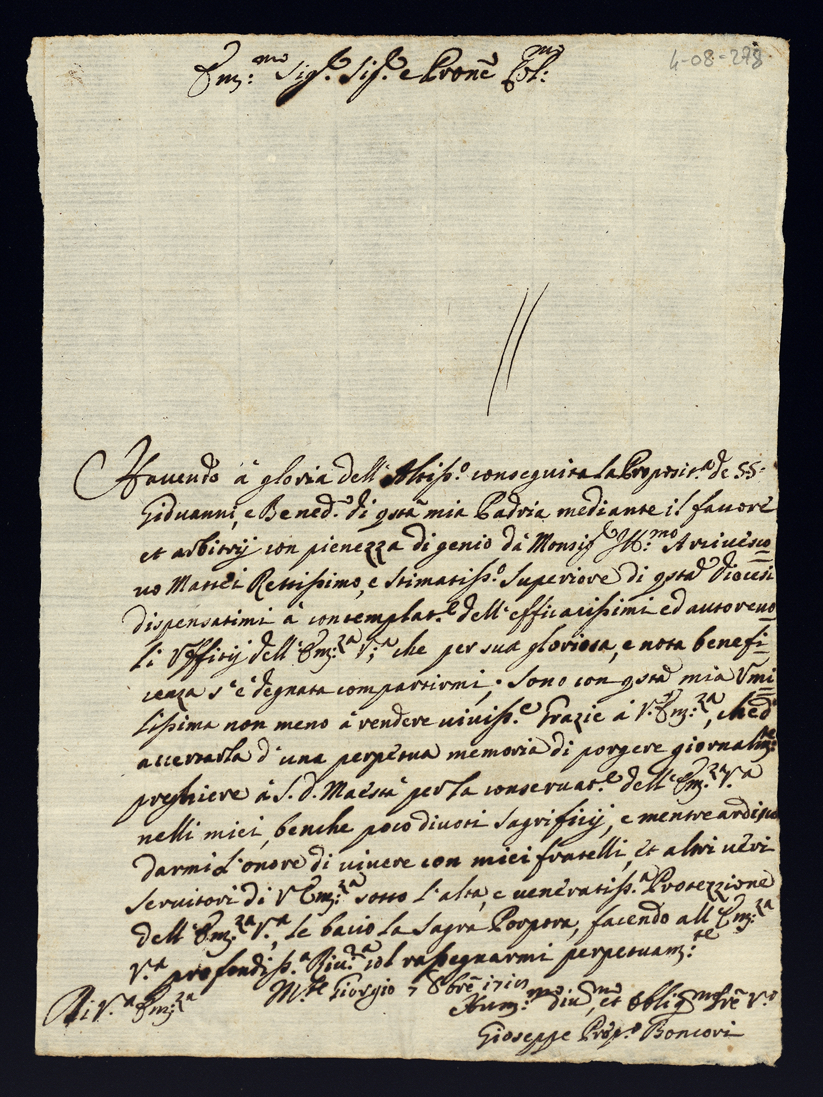 4-08-278.
Em:mo Sigr. Sigr. e Prone Col:mo
Havendo à gloria dell'Altiss.o conseguita la Proposit.a de SS.
Giovanni, e Bened.o di qsta mia Padria mediante il favore
et arbitrij con pienezza di genio dà Monsigr Ill:mo Arcivesco=
vo Mattei Rettissimo, e stimatiss.o Superiore di qsta Diocesi
dispensatimi à contemplat.e dell'efficacissimi ed autorevo=
li Ufficij dell'Em:za V:a che per sua gloriosa, e nota benefi=
cenza s'è degnata compartirmi; Sono con qsta mia Umi=
lissima non meno à rendere viviss.e Grazie à V. Em:za, che d'
accertarla d'una perpetua memoria di porgere giornalm:te
preghiere à S. D. Maestà per la conservat.e dell'Em:za V.a
nelli miei, benche poco divoti Sagrificij, e mentre ardisco
darmi l'onore di vivere con miei fratelli, et altri veri
servitori di V Em:za sotto l'alta, e veneratiss.a Protezzione
dell'Em:za V.a, le bacio la Sagra Porpora, facendo all'Em:za
V.a profondiss.a Riv.a col rassegnarmi perpetuam:te
M.te Giorgio 7 8bre
Di V.a Em:za
Hum:mo div:mo, et Oblig:mo Sre V.o
Gioseppe Prop.o Boncori